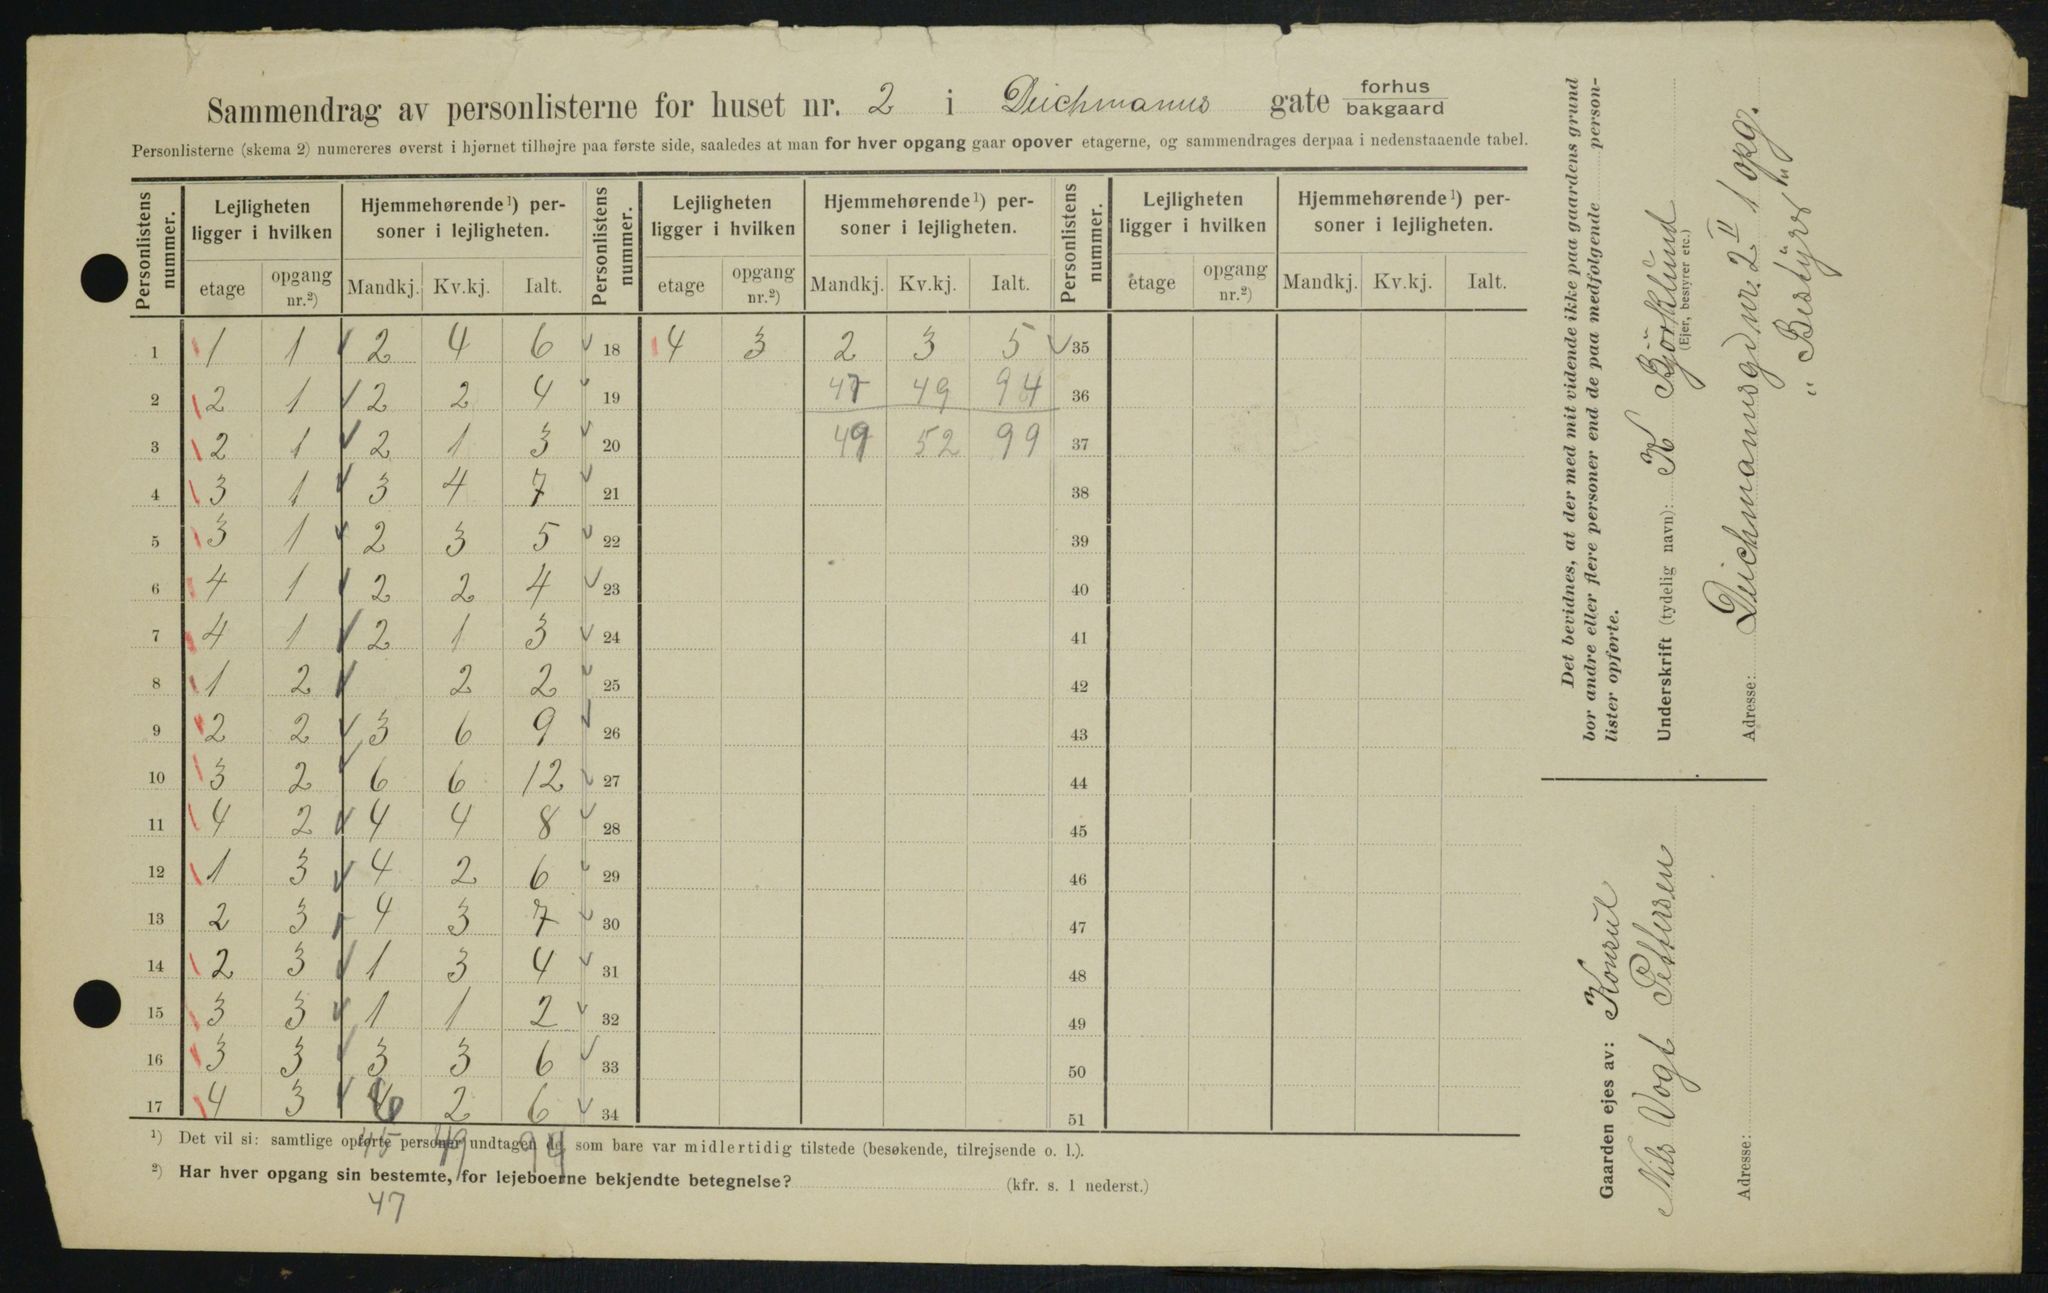 Sammendrag av personlisterne for huset nr. 2 i Deichmanns gate forhus bakgaard
Personlisterne (skema 2) numereres øverst i hjørnet tilhøjre paa første side, saaledes at man for hver opgang gaar opover etagerne, og sammendrages derpaa i nedenstaaende tabel.
Personlistens nummer. Lejligheten ligger i hvilken Hjemmehørende ¹) personer i lejligheten. Personlistens nummer. Lejligheten ligger i hvilken Hjemmehørende ¹) personer i lejligheten. Personlistens nummer. Lejligheten ligger i hvilken Hjemmehørende ¹) personer i lejligheten.
etage opgang nr.²) Mandkj. Kv.kj. Ialt. etage opgang nr.²) Mandkj. Kv.kj. Ialt. etage opgang nr.²) Mandkj. Kv.kj. Ialt.
1 1 1 2 4 6 18 4 3 2 3 5 35
2 2 1 2 2 4 19 47 49 94 36
3 2 1 2 1 3 20 49 52 99 37
4 3 1 3 4 7 21 38
5 3 1 2 3 5 22 39
6 4 1 2 2 4 23 40
7 4 1 2 1 3 24 41
8 1 2 2 2 25 42
9 2 2 3 6 9 26 43
10 3 2 6 6 12 27 44
11 4 2 4 4 8 28 45
12 1 3 4 2 6 29 46
13 2 3 4 3 7 30 47
14 2 3 1 3 4 31 48
15 3 3 1 1 2 32 49
16 3 3 3 3 6 33 50
17 4 3 2 6 34 51
¹) Det vil si: samtlige opførte personer undtagen de, som bare var midlertidig tilstede (besøkende, tilrejsende o. l.).
45 49 94
²) Har hver opgang sin bestemte, for lejeboerne bekjendte betegnelse? (kfr. s. 1 nederst.)
47
Det bevidnes, at der med mit vidende ikke paa gaardens grund
bor andre eller flere personer end de paa medfølgende person-
lister opførte.
Underskrift (tydelig navn): K Bjørklund
(Ejer, bestyrer etc.)
Adresse: Deichmannsgd nr. 2 II 1 opg.
"Bestyrer"
Gaarden ejes av: Konsul
Nils Vogt Pettersen
Adresse: